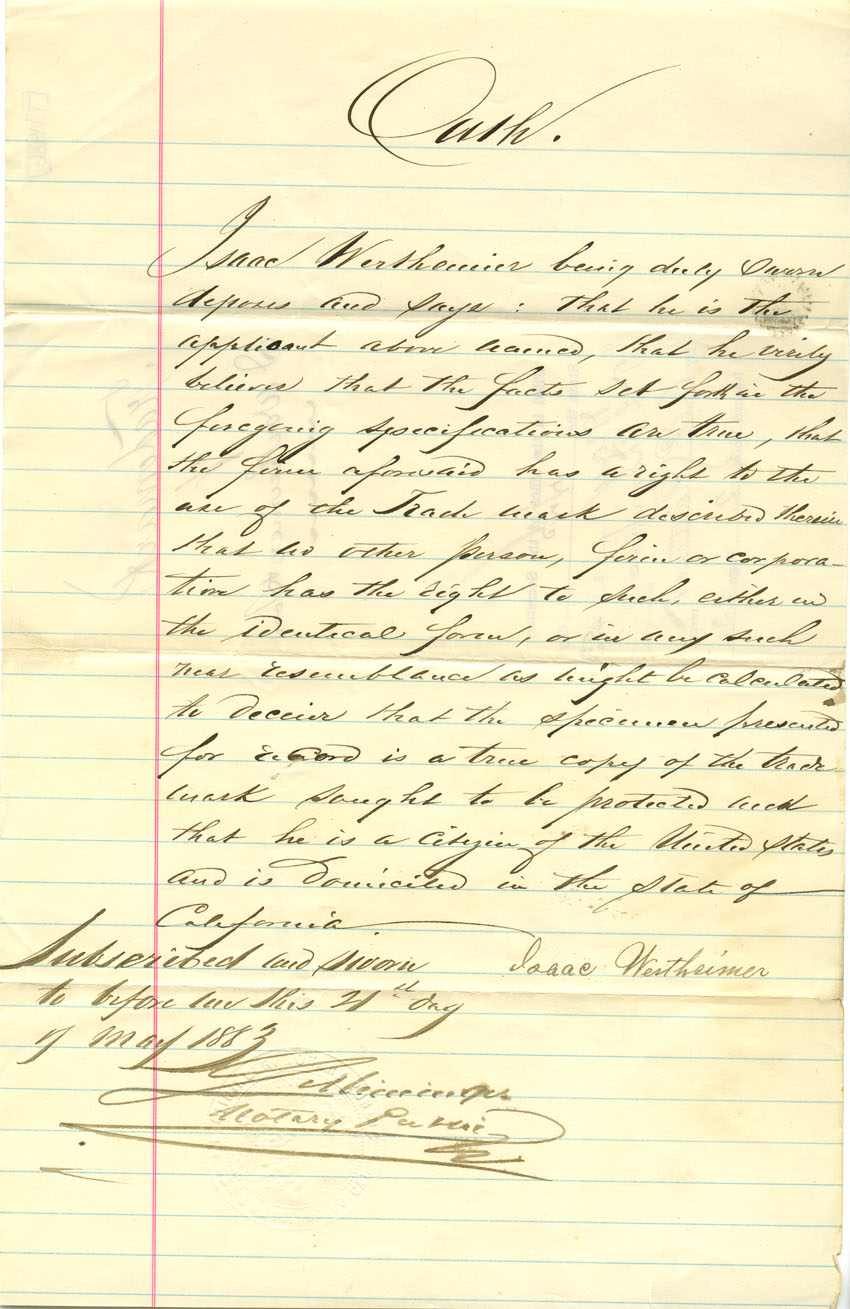 Oath.
Isaac Wertheimer being duly sworn
deposes and says : that he is the
applicant above named, that he verily
believes that the facts set forth in the
foregoing specifications are true, that
the firm aforesaid has a right to the
use of the Trade mark described therein
that no other person, firm or corpora-
tion has the right to such, either in
the identical form, or in any such
near resemblance as might be calculated
to deceive that the specimen presented
for record is a true copy of the trade
mark sought to be protected and
that he is a citizen of the United States
and is domiciled in the State of
California
Subscribed and sworn Isaac Wertheimer
to before me this 21st day
of May 1883
Notary Public